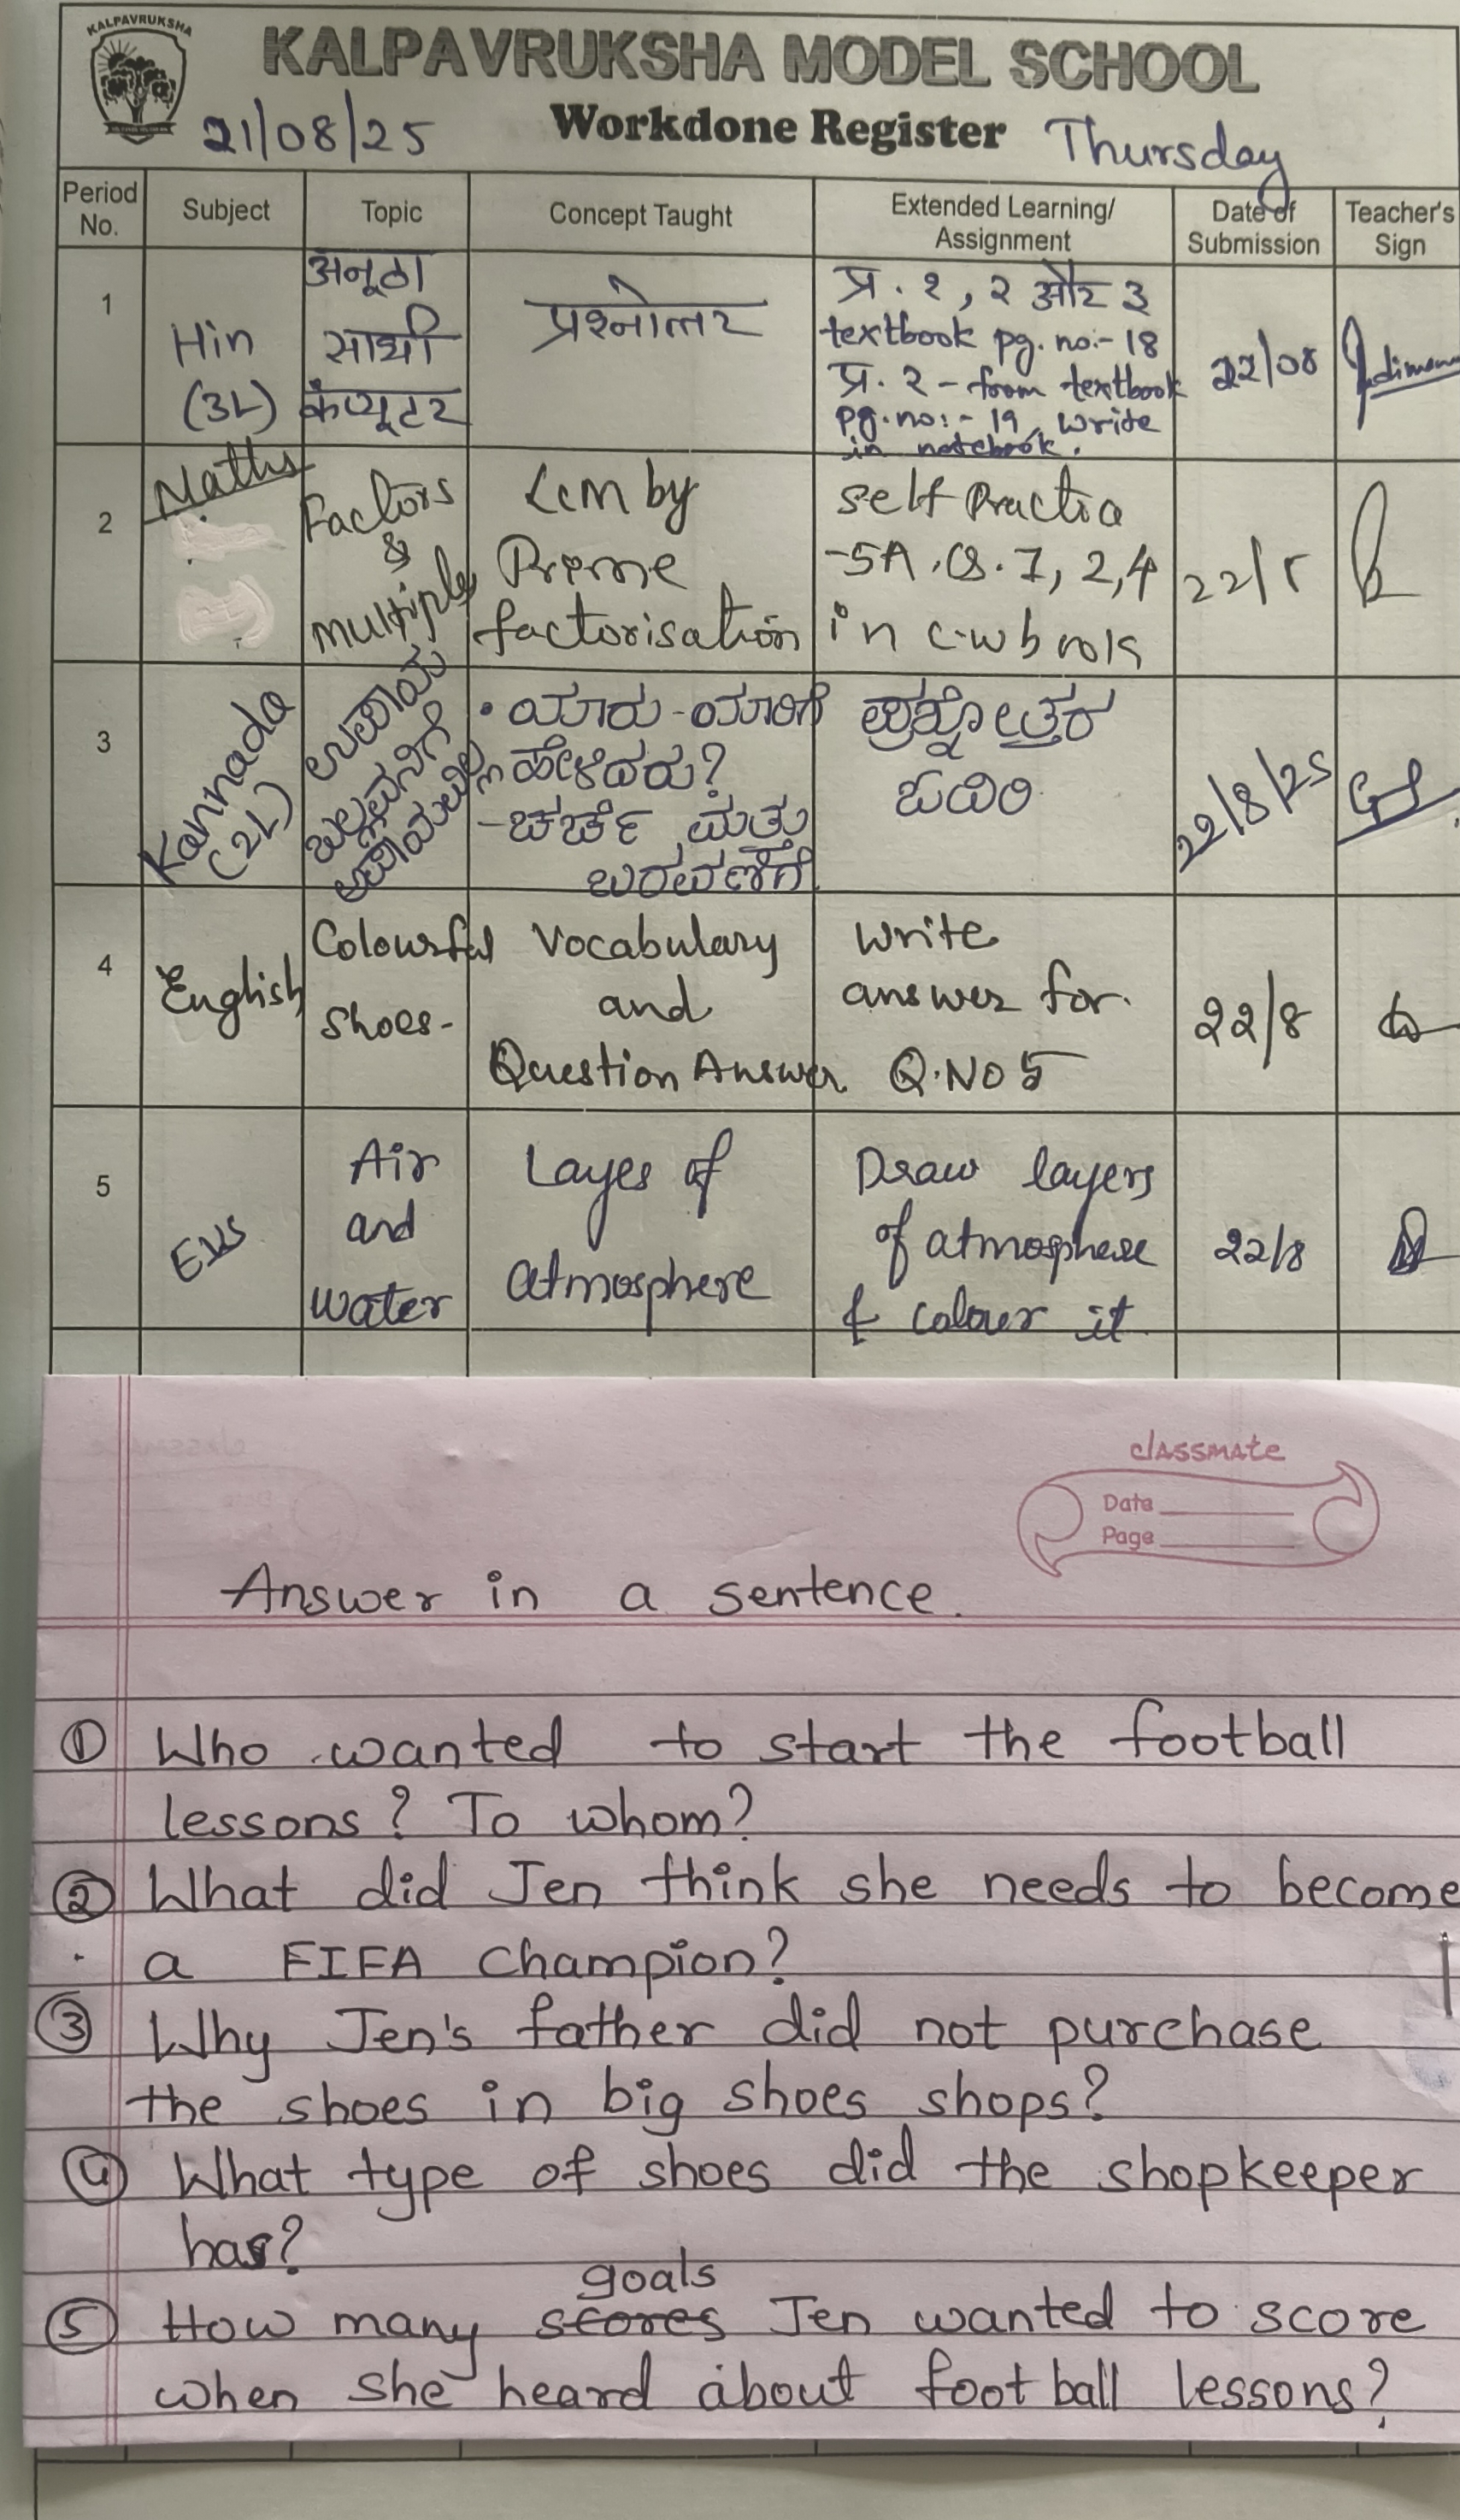 KALPAVRUKSHA
KALPAVRUKSHA MODEL SCHOOL
21/08/25 Workdone Register Thursday
Period No. Subject Topic Concept Taught Extended Learning/ Assignment Date of Submission Teacher's Sign
1
Hin
(3L)
अनूठा
साथी
कंप्यूटर
प्रश्नोत्तर
प्र. १, २ और ३
textbook pg. no:- 18
प्र. २ - from textbook
pg. no:- 19, write
in notebook.
22/08
2
Maths
Factors
&
multiples
LCM by
Prime
factorisation
self Practice
-5A, Q. 1, 2, 4
in c.w book
22/8
3
Kannada
(2L)
ಉಪಾಯ
ಬಲ್ಲವನಿಗೆ
ಅಪಾಯವಿಲ್ಲ
• ಯಾರು - ಯಾರಿಗೆ
ಹೇಳಿದರು?
- ಚರ್ಚೆ ಮತ್ತು
ಬರವಣಿಗೆ
ಪ್ರಶ್ನೋತ್ತರ
ಓದಿರಿ
22/8/25
4
English
Colourful
shoes-
Vocabulary
and
Question Answer
Write
answer for
Q.NO 5
22/8
5
EVS
Air
and
water
Layes of
atmosphere
Draw layers
of atmosphere
& colour it
22/8
classmate
Date
Page
Answer in a sentence.
① Who wanted to start the football
lessons? To whom?
② What did Jen think she needs to become
a FIFA champion?
③ Why Jen's father did not purchase
the shoes in big shoes shops?
④ What type of shoes did the shopkeeper
has?
goals
⑤ How many scores Jen wanted to score
when she heard about foot ball lessons?